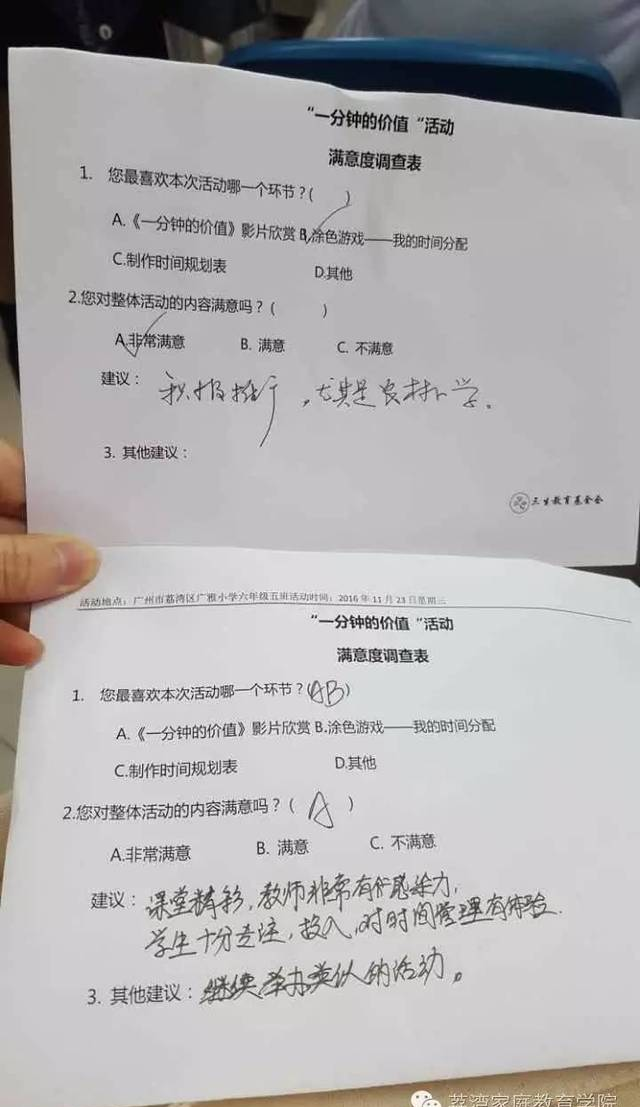 “一分钟的价值“活动
满意度调查表
1. 您最喜欢本次活动哪一个环节？( )
A.《一分钟的价值》影片欣赏 B.涂色游戏——我的时间分配
C.制作时间规划表 D.其他
2.您对整体活动的内容满意吗？( )
A.非常满意 B. 满意 C. 不满意
建议： 积极推行，尤其是农村小学。
3. 其他建议：
三生教育基金会
活动地点：广州市荔湾区广雅小学六年级五班活动时间：2016年11月23日星期三
“一分钟的价值“活动
满意度调查表
1. 您最喜欢本次活动哪一个环节？(AB)
A.《一分钟的价值》影片欣赏 B.涂色游戏——我的时间分配
C.制作时间规划表 D.其他
2.您对整体活动的内容满意吗？( A )
A.非常满意 B. 满意 C. 不满意
建议： 课堂精彩，教师非常有 力，
学生十分专注，投入，对时间管理有体验.
3. 其他建议： 继续举办类似的活动。
荔湾家庭教育学院